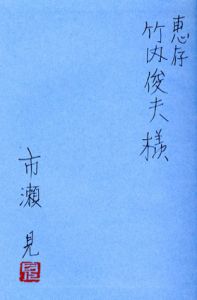 惠存
竹内俊夫様
市瀬 見